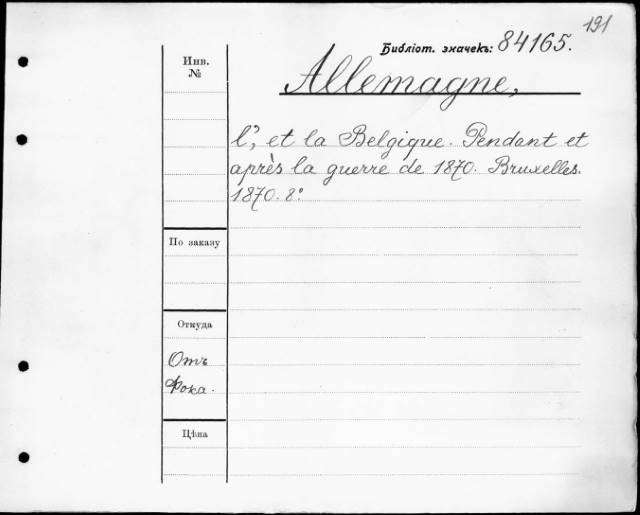 191
Библіот. значекъ: 84165.
Инв.
№
Allemagne,
l', et la Belgique. Pendant et
après la guerre de 1870. Bruxelles.
1870. 8°.
По заказу
Откуда
Отъ
Фока.
Цѣна